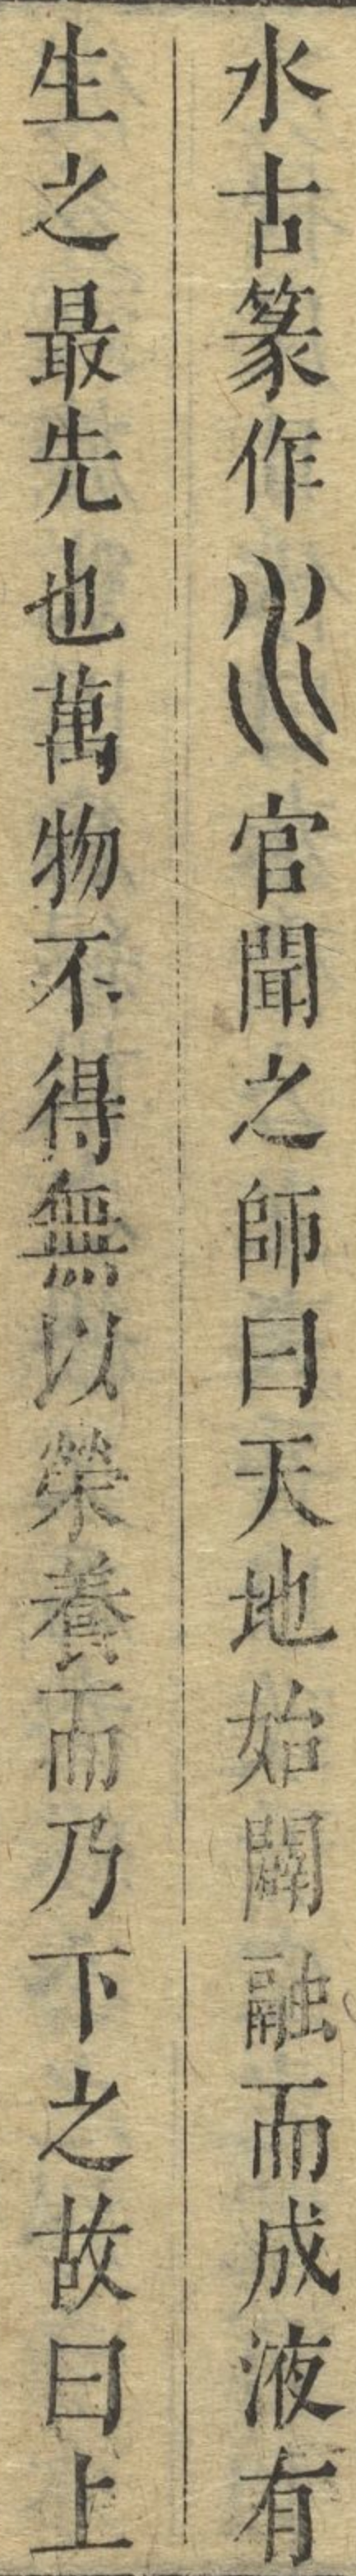 水古篆作官聞之師曰天地始闢融而成液有
生之最先也萬物不得無以榮養而乃下之故曰上